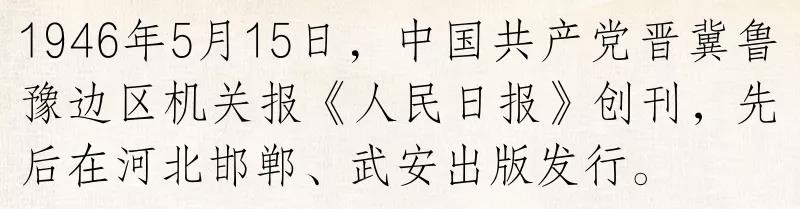 1946年5月15日，中国共产党晋冀鲁
豫边区机关报《人民日报》创刊，先
后在河北邯郸、武安出版发行。